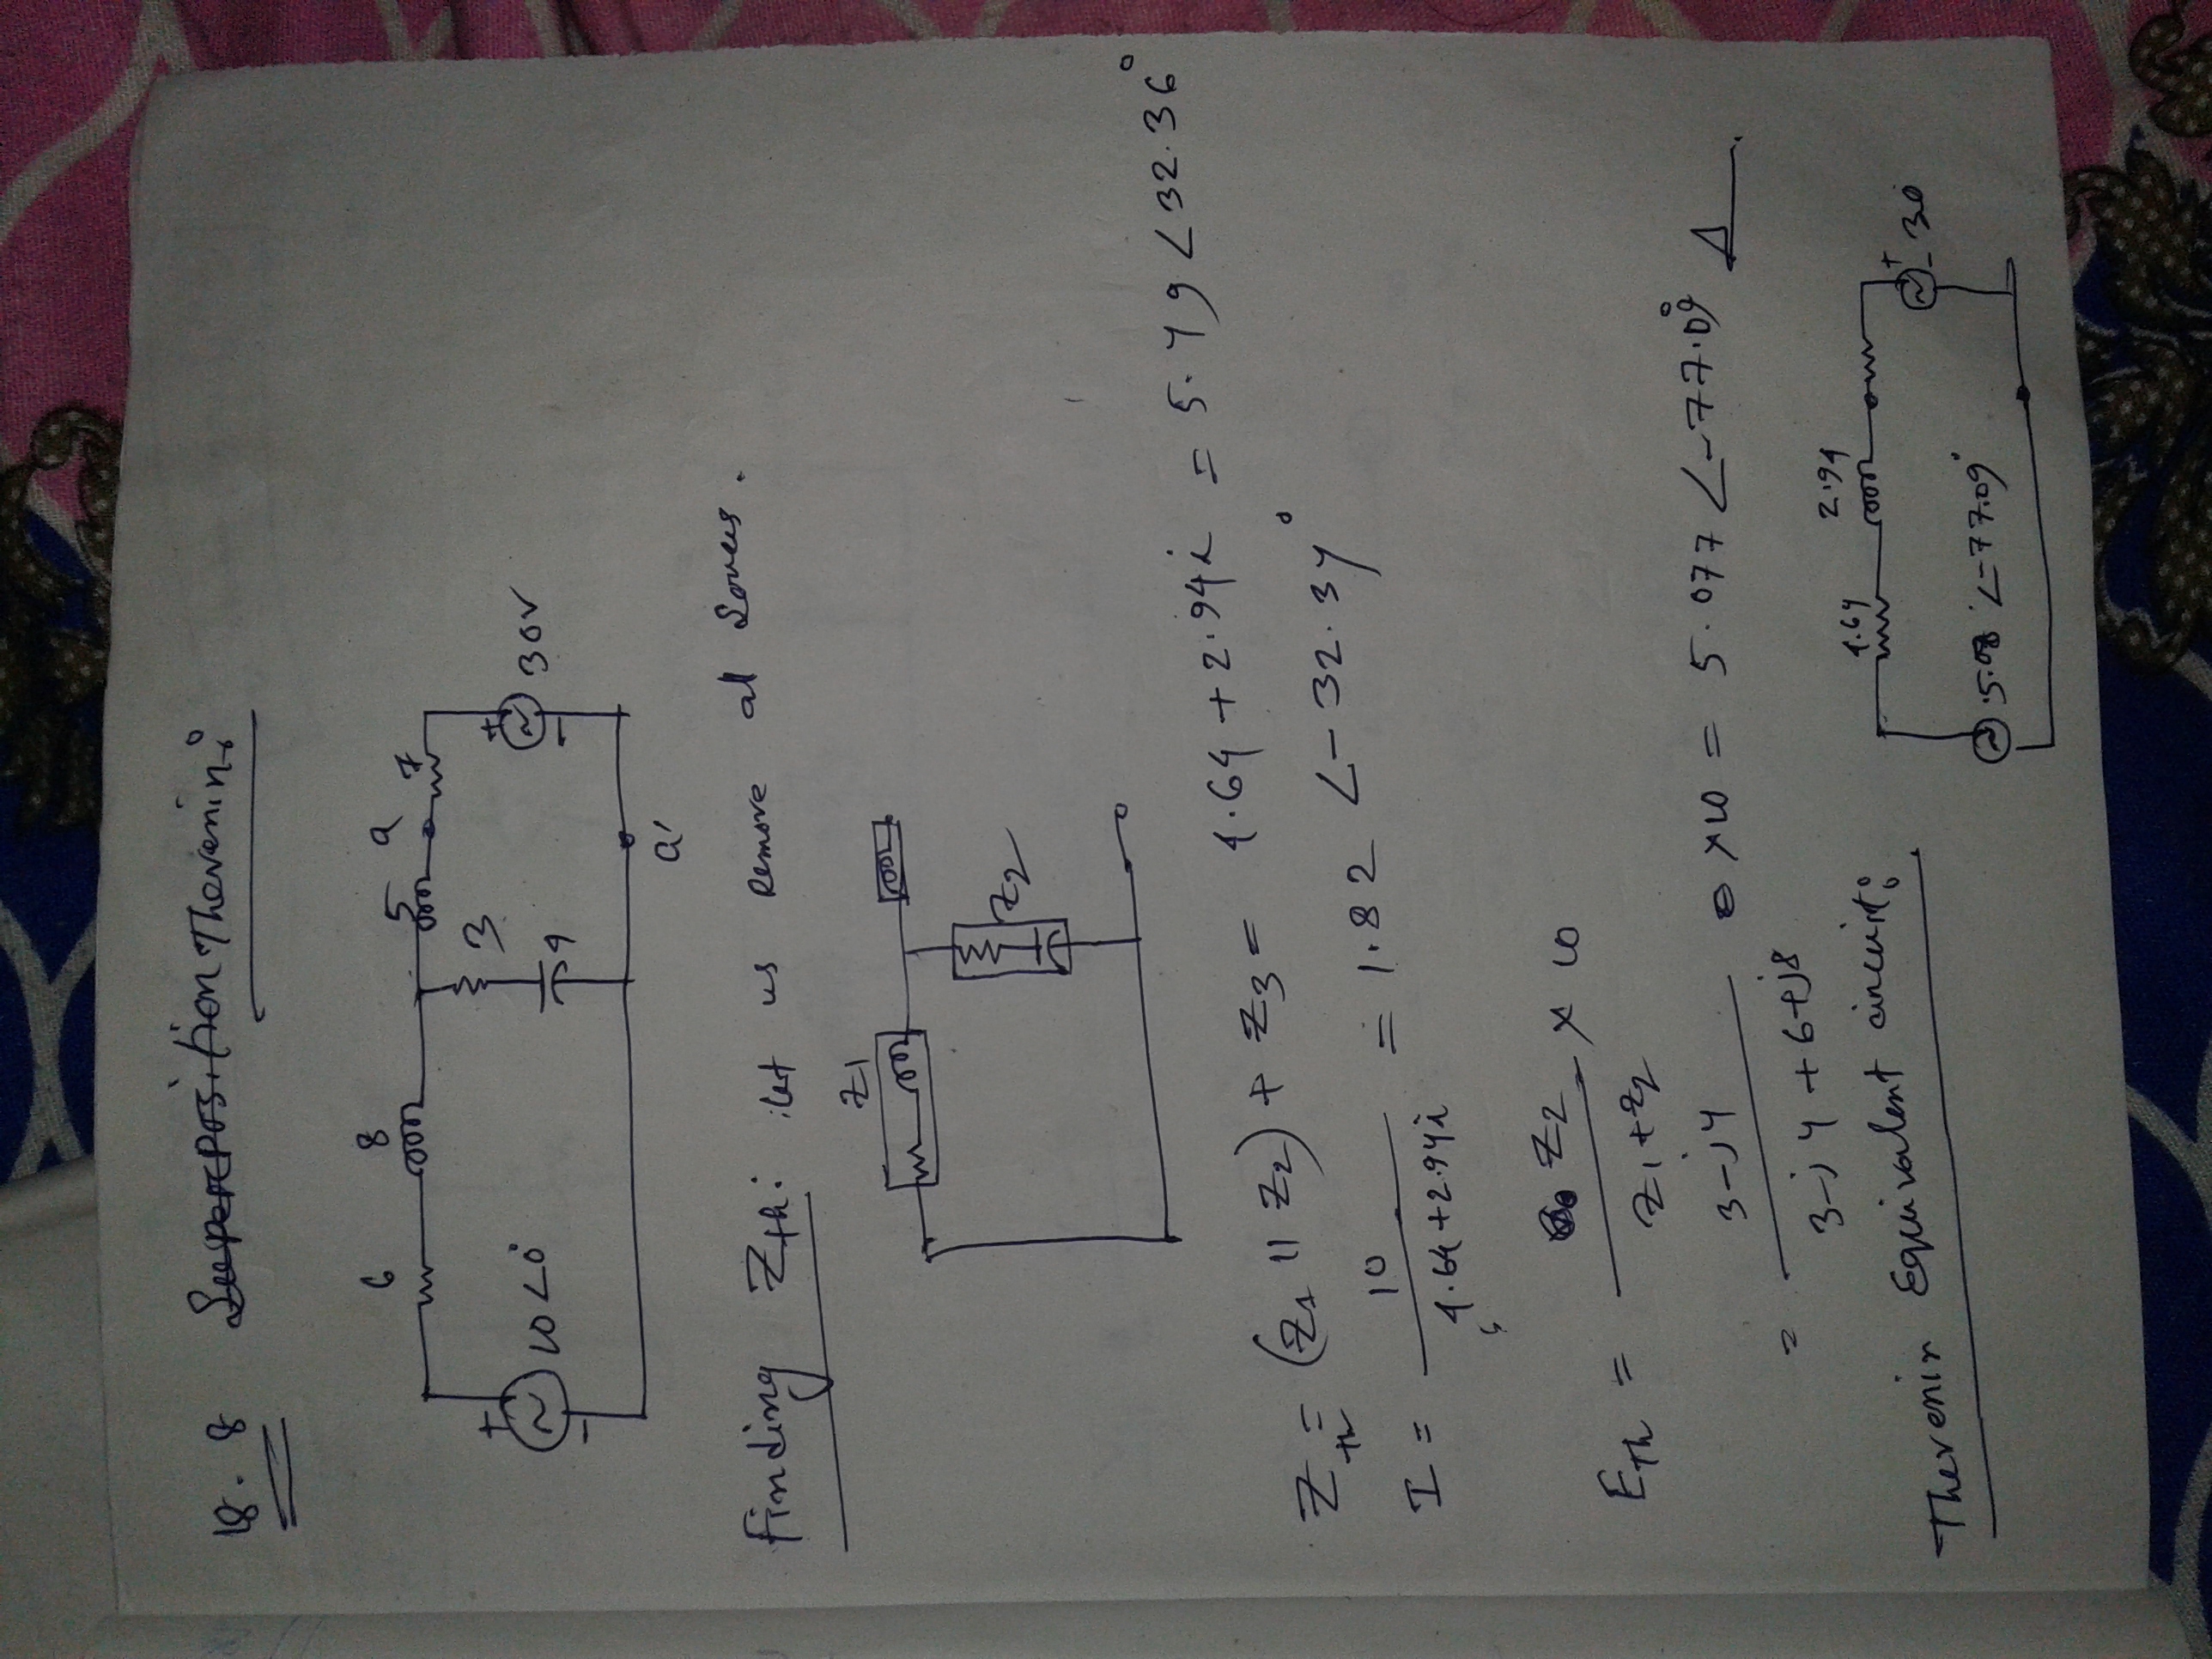 18.8 Superposition Thevenin:
6 8 5 a 7
3
10∠0° 4 30V
a'
Finding Zth: let us remove al
Z1
Z2
Zth = (Z1 || Z2) + Z3 = 4.64 + 2.94i = 5.49 ∠32.36°
I = 10 / 4.64+2.94i = 1.82 ∠-32.34°
ETh = Z2 / Z1+Z2 × 10
= 3-j4 / 3-j4+6+j8 ×10 = 5.077 ∠-77.09°
Thevenin Equivalent circuit:
4.64 2.94
30
5.08 ∠-77.09°